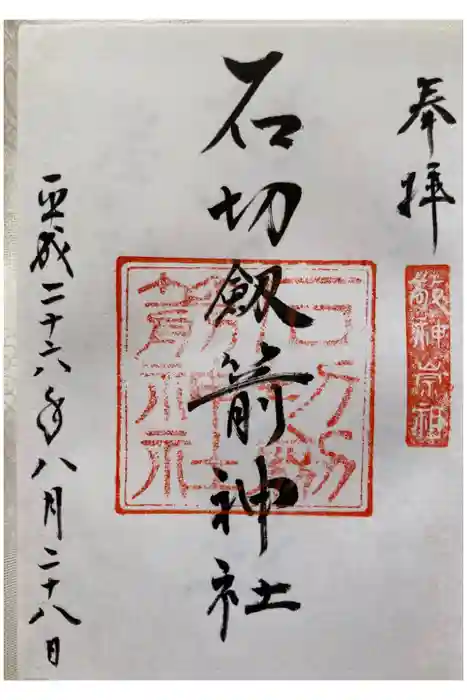 奉拝
敬神崇祖
石切劔箭神社
石切劔箭神社
平成二十六年八月二十八日